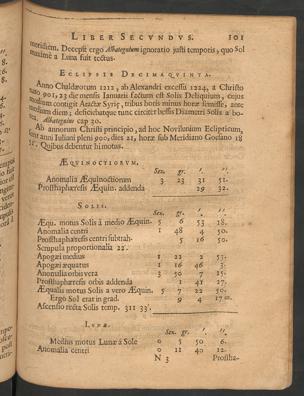 LIBER SECVNDVS. 101
meridiem. Decepit ergo Albategnium ignoratio justi temporis, quo Sol
maximè a Luna fuit tectus.
ECLIPSIS DECIMAQUINTA.
Anno Chaldæorum 1212, ab Alexandri excessu 1224, a Christo
nato 901, 23 die mensis Januarii factum est Solis Deliquium, cujus
medium contigit Aractæ Syriæ, tribus horis minus horæ semisse, ante
medium diem; defiCiebatque tunc circiter bessis Diametri Solis a bo-
rea. Albategnius cap 30.
Ab annorum Christi principio, ad hoc Novilunium Eclipticum,
sunt anni Juliani pleni 900, dies 21, horæ sub Meridiano Goesano 18
Quibus debentur hi motus.
ÆQUINOCTIORUM.
Sex. gr. ′. ″.
Anomalia Æquinoctiorum 3 23 31 51.
Prosthaphæresis Æquin. addenda 29 32.
SOLIS.
Sex. gr. ′. ″.
Æqu. motus Solis à medio Æquin. 5 6 53 18.
Anomalia centri 1 48 4 50.
Prosthaphæresis centri subtrah. 5 16 50.
Scrupula proportionalia 22′.
Apogæi medius 1 22 2 53.
Apogæi æquatus 1 16 46 3.
Anomalia orbis vera 3 50 7 15.
Prosthaphæresis orbis addenda 1 41 27.
Æqualis motus Solis a vero Æquin. 5 7 22 50.
Ergò Sol erat in grad. 9 4 17
Ascensio recta Solis temp. 311 33′.
LUNÆ.
Sex. gr. ′. ″.
Medius motus Lunæ à Sole 0 5 50 6.
Anomalia centri 0 11 40 12.
N 3 Prostha-